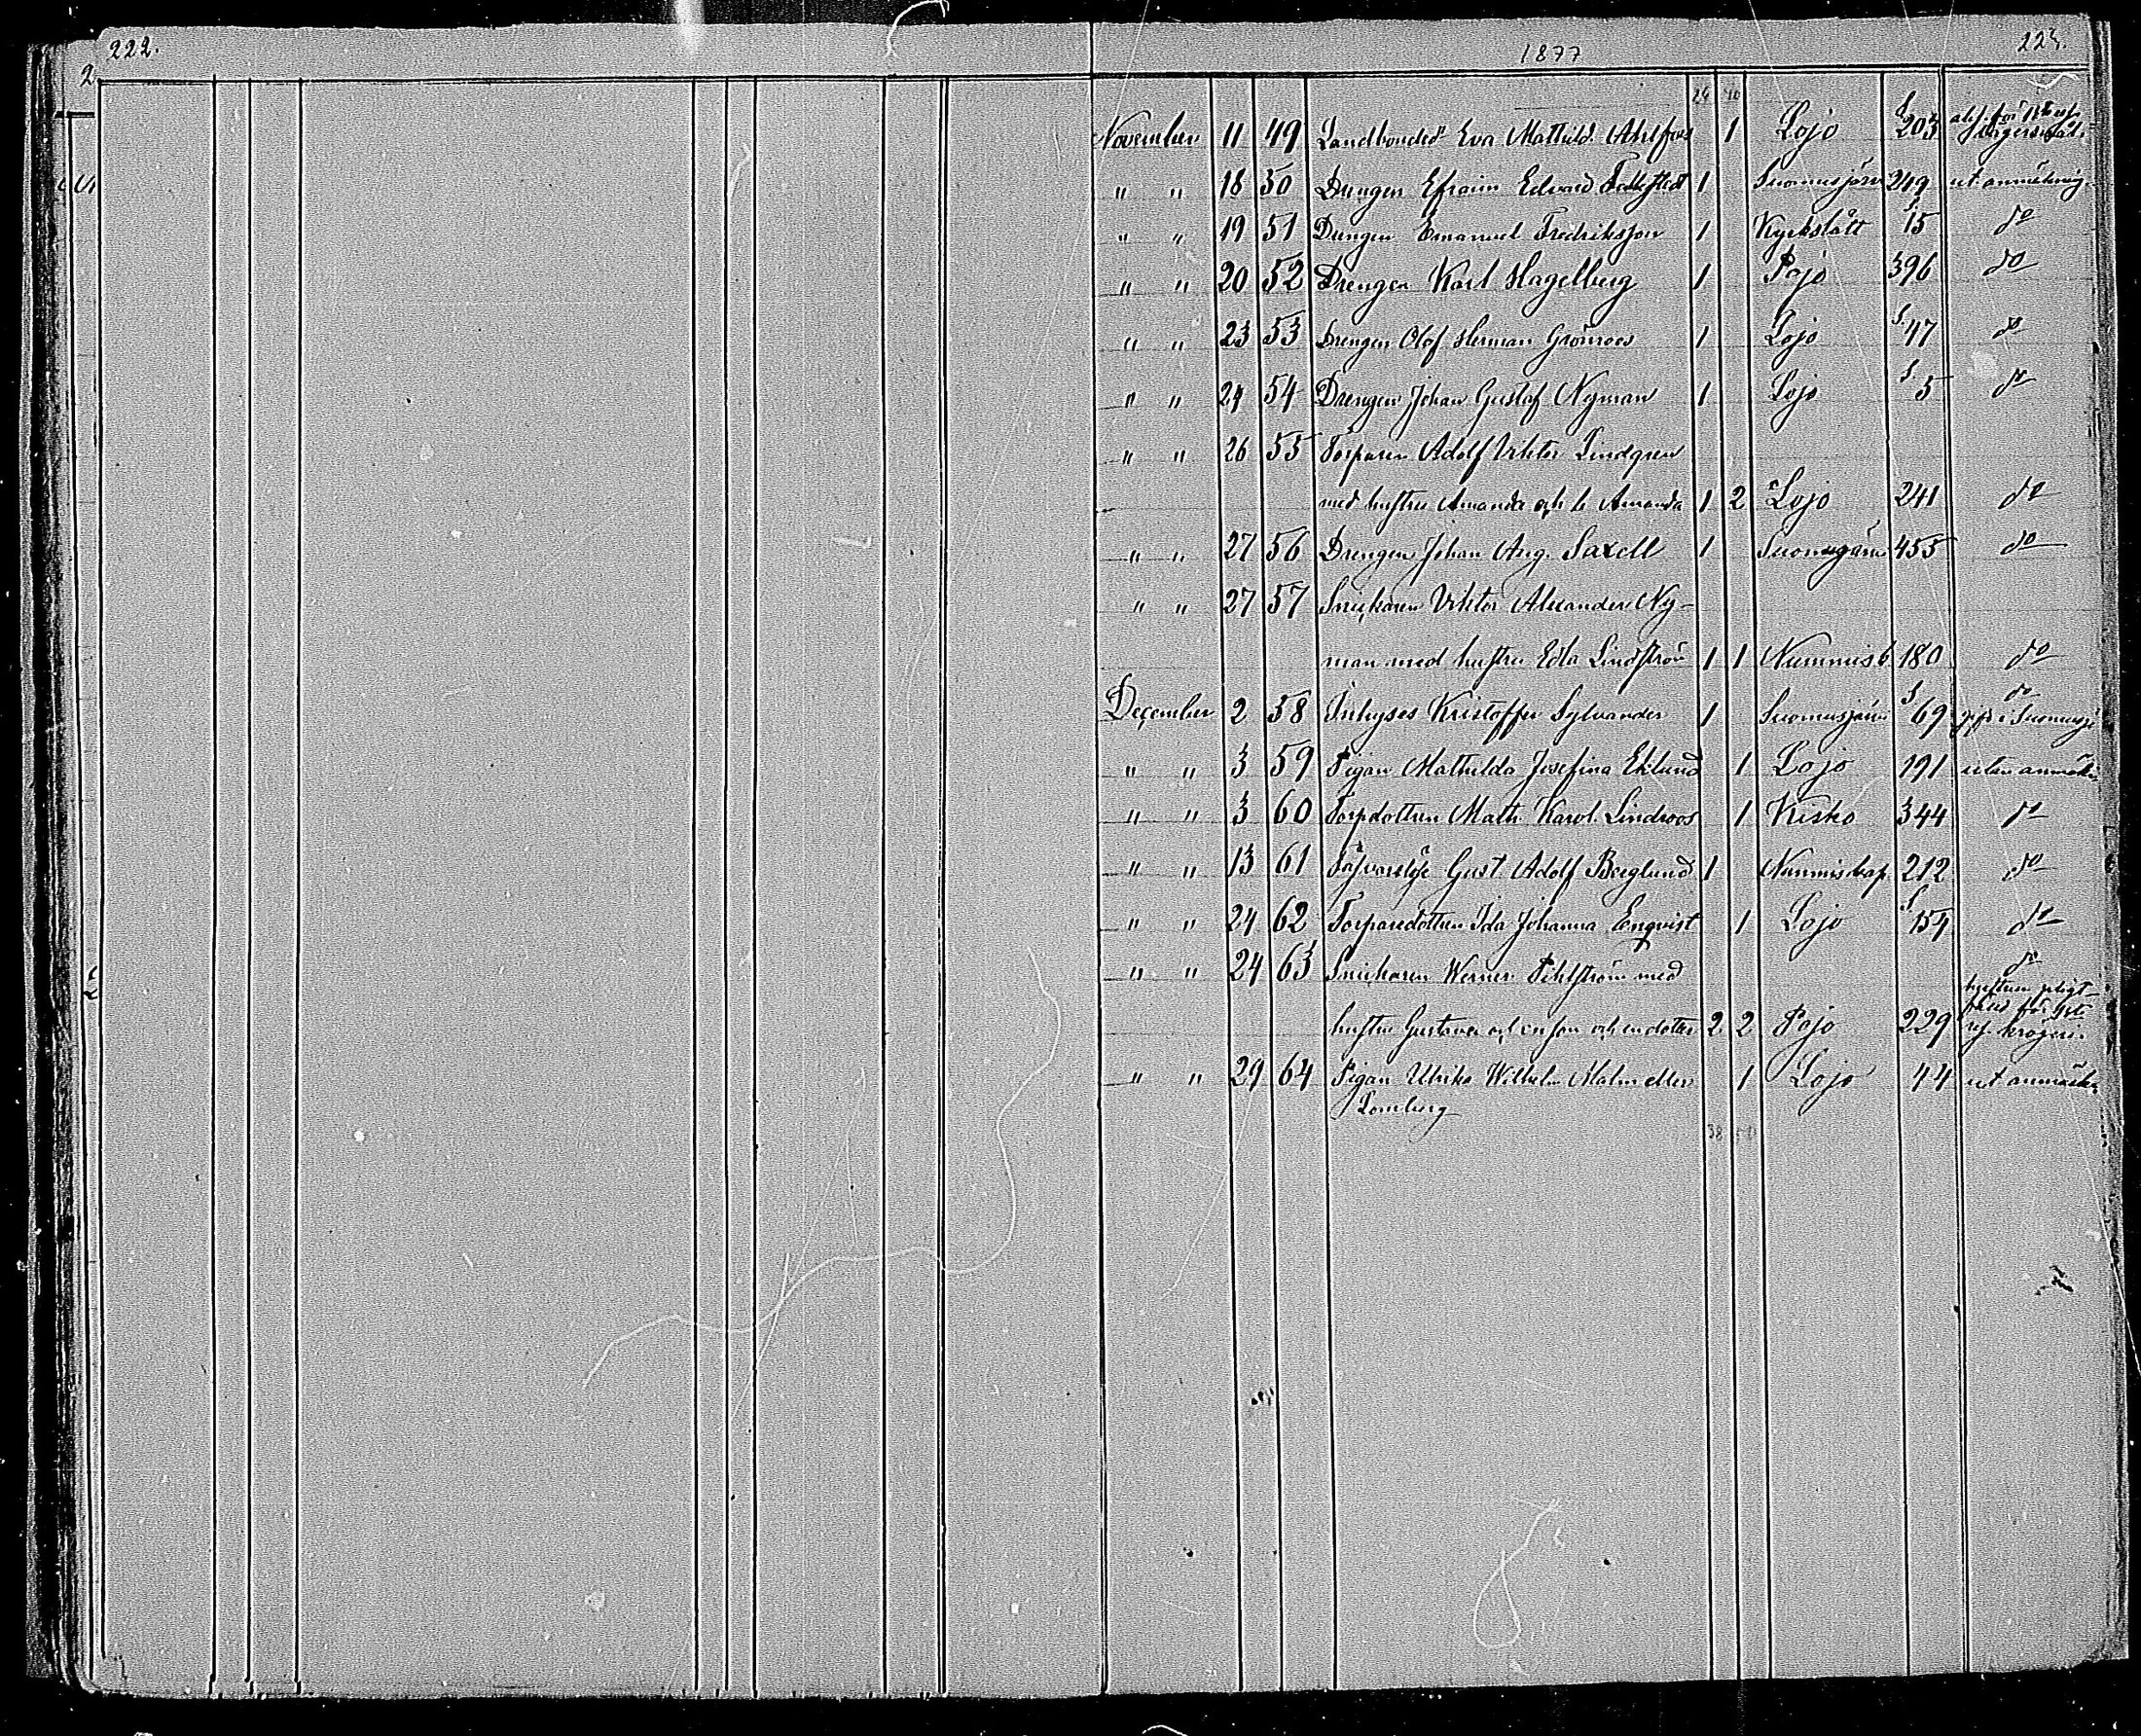 222.
1877
223.
24 40
November 11 49 Landbonded:r Eva Mathild. Ahlfors 1 Lojo S. 203
" " 18 50 Drengen Efraim Edvard 1 Suomusjärvi 249 ut. anmärkning
" " 19 51 Drengen Emanuel Fredriksson 1 Kyrkslätt S. 15 do
" " 20 52 Drengen Karl Hagelberg 1 Pojo 396 do
" " 23 53 Drengen Olof Herman Grönroos 1 Lojo S. 47 do
" " 24 54 Drengen Johan Gustaf Nyman 1 Lojo S. 5 do
" " 26 55 Torparen Adolf Viktor Lindgren
med hustru Amanda och b Amanda 1 2 Lojo 241 do
" " 27 56 Drengen Johan Aug. Saxell 1 Suomusjärvi 455 do
" " 27 57 Snickaren Viktor Alexander Ny-
man med hustru Edla Lindström 1 1 Nummis 180 do
December 2 58 Inhyses Kristoffer Sylvander 1 Suomusjärvi S 69 do
gift i Suomusj.
" " 3 59 Pigan Mathilda Josefina Eklund 1 Lojo 191 utan anmärkn.
" " 3 60 Torpdottren Math. Karol. Lindroos 1 Kisko 344 do
" " 13 61 Gust. Adolf Berglund 1 Nummis kap. 212 do
" " 24 62 Torparedottren Ida Johanna Enqvist 1 Lojo S 154 do
" " 24 63 Snickaren Werner Pihlström med do
hustru Gustava och en son och en dotter 2 2 Pojo 229 hustrun för krögeri.
" " 29 64 Pigan Ulrika Wilhelm. Malm eller 1 Lojo 44 ut anmärkn.
Lomberg
38